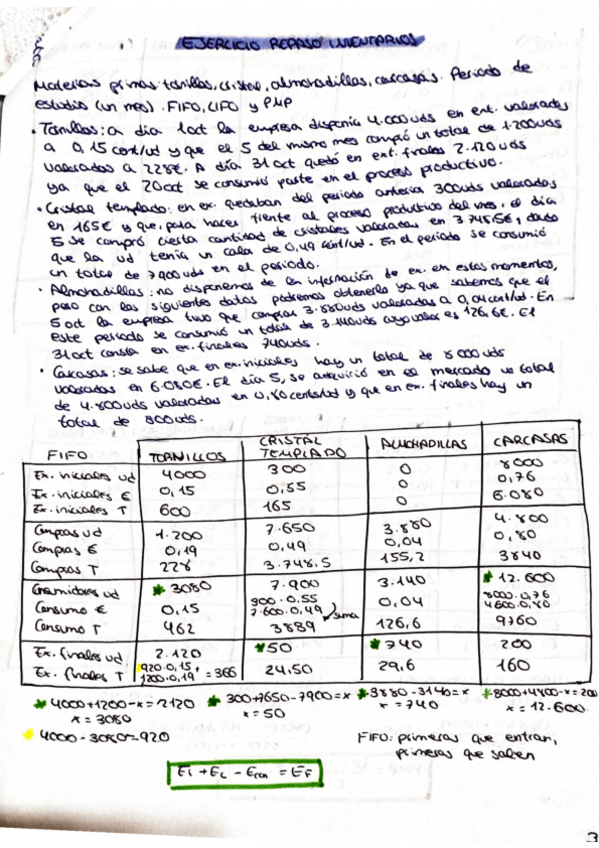 EJERCICIO REPASO INVENTARIOS
Materias primas: tornillos, cristal, almohadillas, carcasas. Periodo de
estudio (un mes). FIFO, LIFO y PMP
• Tornillos: a día 1 oct la empresa disponía 4.000 uds en ext. valoradas
a 0,15 cent/ud y que el 5 del mismo mes compró un total de 1.200 uds
valoradas a 228€. A día 31 oct quedó en ext. finales 2.120 uds
ya que el 20 oct se consumió parte en el proceso productivo.
• Cristal templado: en ex. quedaban del periodo anterior 300 uds valorados
en 165€ y que, para hacer frente al proceso productivo del mes, el día
5 se compró cierta cantidad de cristales valorados en 3.748,5€, dado
que la ud tenía un de 0,49 cent/ud. En el periodo se consumió
un total de 7900 uds en el periodo.
• Almohadillas: no disponemos de la información de ex. en estos momentos,
pero con los siguientes datos podremos obtenerla ya que sabemos que el
5 oct la empresa tuvo que comprar 3.880 uds valoradas a 0,04 cent/ud. En
este periodo se consumió un total de 3.140 uds cuyo valor es 126,6€. El
31 oct consta en ex. finales 740 uds.
• Carcasas: se sabe que en ex. iniciales hay un total de 8000 uds
valoradas en 6.080€. El día 5, se adquirió en el mercado un total
de 4.800 uds valoradas en 0,80 cents/ud y que en ex. finales hay un
total de 800 uds.
FIFO TORNILLOS CRISTAL TEMPLADO ALMOHADILLAS CARCASAS
Ex. iniciales ud 4000 300 0 8000
Ex. iniciales € 0,15 0,55 0 0,76
Ex. iniciales T 600 165 0 6.080
Compras ud 1.200 7.650 3.880 4.800
Compras € 0,19 0,49 0,04 0,80
Compras T 228 3.748,5 155,2 3840
Consumidores ud 3080 7.900 3.140 12.600
Consumo € 0,15 300·0,55 0,04 8000·0,76
7600·0,49 suma 4600·0,80
Consumo T 462 3889 126,6 9760
Ex. finales ud 2.120 50 740 200
Ex. finales T 920·0,15 + 1200·0,19 = 366 24,50 29,6 160
4000+1200-x=2120 300+7650-7900=x 3880-3140=x 8000+4800-x=200
x=3080 x=50 x=740 x=12.600
4000-3080=920
FIFO: primeras que entran,
primeras que salen
Ei + Ec - Econ = EF
3